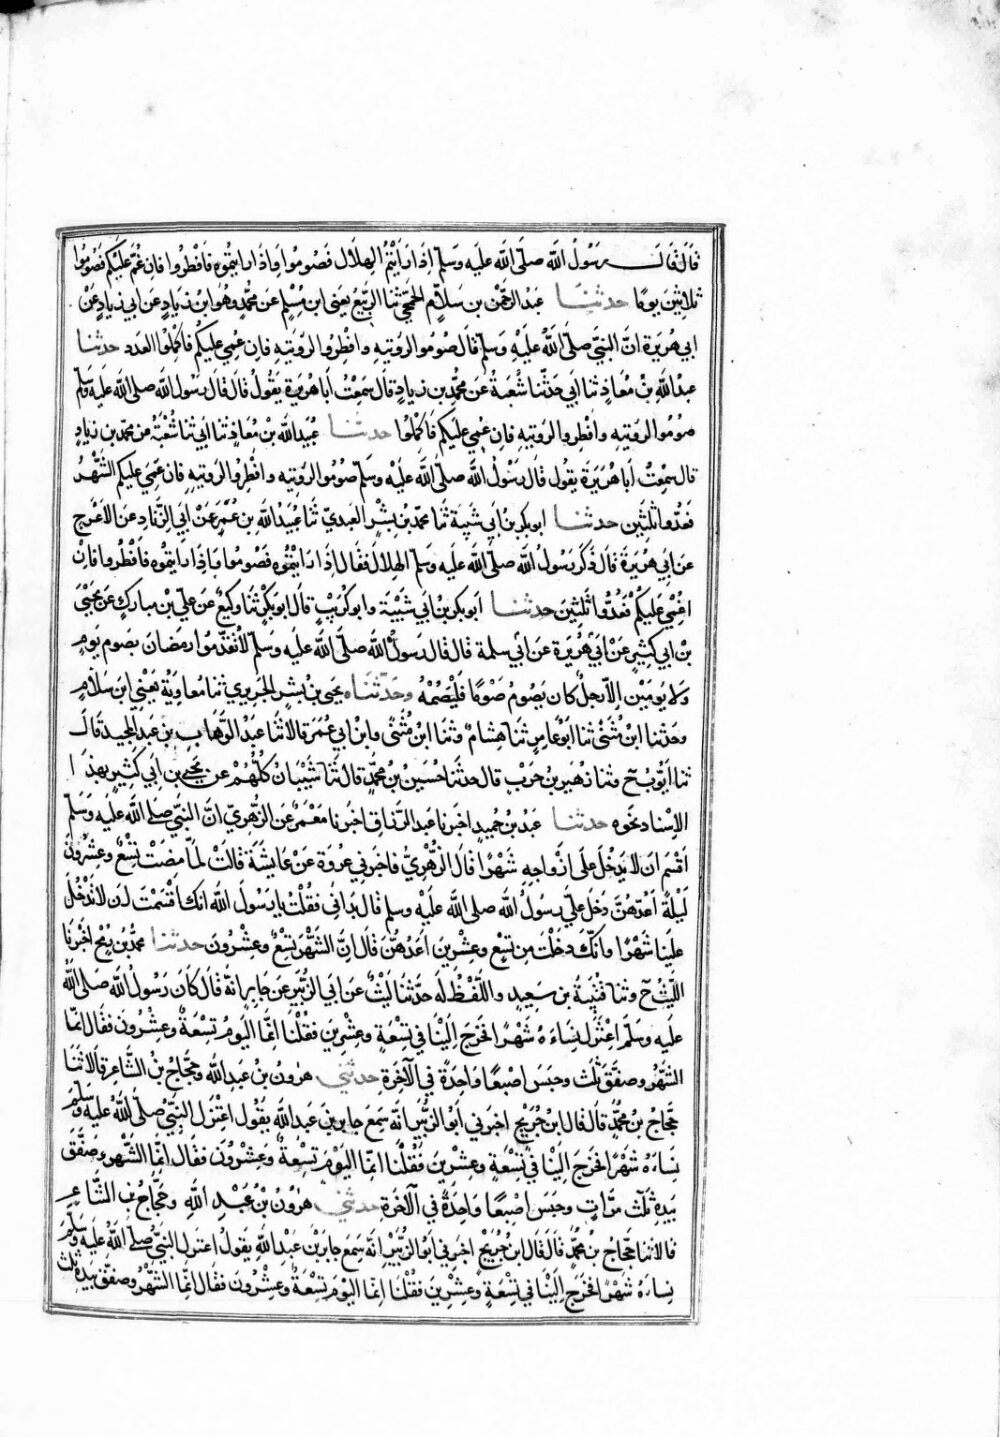 قال قال رسول الله صلى الله عليه وسلم اذا رايتم الهلال فصوموا واذا رايتموه فافطروا فان غم عليكم فصوموا
ثلاثين يوما حدثنا عبد الرحمن بن سلام الجمحي ثنا الربيع يعني ابن مسلم عن محمد وهو ابن زياد عن ابي زياد عن
ابي هريرة ان النبي صلى الله عليه وسلم قال صوموا لرويته وافطروا لرويته فان غمي عليكم فاكملوا العدد حدثنا
عبد الله بن معاذ ثنا ابي حدثنا شعبة عن محمد بن زياد قال سمعت ابا هريرة يقول قال قال رسول الله صلى الله عليه وسلم
صوموا لرويته وافطروا لرويته فان غمي عليكم فاكملوا حدثنا عبيد الله بن معاذ ثنا ابي ثنا شعبة عن محمد بن زياد
قال سمعت ابا هريرة يقول قال رسول الله صلى الله عليه وسلم صوموا لرويته وافطروا لرويته فان غمي عليكم الشهر
فعدوا ثلثين حدثنا ابو بكر بن ابي شيبة ثنا محمد بن بشر العبدي ثنا عبيد الله بن عمر عن ابي الزناد عن الاعرج
عن ابي هريرة قال ذكر رسول الله صلى الله عليه وسلم الهلال فقال اذا رايتموه فصوموا واذا رايتموه فافطروا فان
اغمي عليكم فعدوا ثلثين حدثنا ابو بكر بن ابي شيبة وابو كريب قال ابو بكر ثنا وكيع عن علي بن مبارك عن يحيى
بن ابي كثير عن ابي هريرة عن ابي سلمة قال قال رسول الله صلى الله عليه وسلم لا تقدموا رمضان بصوم يوم
ولا يومين الا رجل كان يصوم صوما فليصمه وحدثناه يحيى بن بشر الجريري ثنا معاوية يعني ابن سلام
وحدثنا ابن مثنى ثنا ابو عامر ثنا هشام وثنا ابن مثنى وابن ابي عمر قالا ثنا عبد الوهاب بن عبد المجيد قال
ثنا ايوب ح وثنا زهير بن حرب قال حدثنا حسين بن محمد قال ثنا شيبان كلهم عن يحيى بن ابي كثير بهذا
الاسناد نحوه حدثنا عبد بن حميد اخبرنا عبد الرزاق اخبرنا معمر عن الزهري ان النبي صلى الله عليه وسلم
اقسم ان لا يدخل على ازواجه شهرا قال الزهري فاخبرني عروة عن عايشة قالت لما مضت تسع وعشرون
ليلة اعدهن دخل علي رسول الله صلى الله عليه وسلم قال بدا بي فقلت يا رسول الله انك اقسمت ان لا تدخل
علينا شهرا وانك دخلت من تسع وعشرين اعدهن قال ان الشهر تسع وعشرون حدثنا محمد بن رمح اخبرنا
الليث ح وثنا قتيبة بن سعيد واللفظ له حدثنا ليث عن ابي الزبير عن جابر انه قال كان رسول الله صلى الله
عليه وسلم اعتزل نساءه شهرا فخرج الينا في تسعة وعشرين فقلنا انما اليوم تسعة وعشرون فقال انما
الشهر وصفق ثلث وحبس اصبعا واحدة في الآخرة حدثني هرون بن عبد الله وحجاج بن الشاعر قالا ثنا
حجاج بن محمد قال قال ابن جريج اخبرني ابو الزبير انه سمع جابر بن عبد الله يقول اعتزل النبي صلى الله عليه وسلم
نساءه شهرا فخرج الينا في تسعة وعشرين فقلنا انما اليوم تسعة وعشرون فقال انما الشهر وصفق
بيده ثلث مرات وحبس اصبعا واحدة في الآخرة حدثني هرون بن عبد الله وحجاج بن الشاعر
قالا ثنا حجاج بن محمد قال قال ابن جريج اخبرني ابو الزبير انه سمع جابر بن عبد الله يقول اعتزل النبي صلى الله عليه وسلم
نساءه شهرا فخرج الينا في تسعة وعشرين فقلنا انما اليوم تسعة وعشرون فقال انما الشهر وصفق بيده ثلث